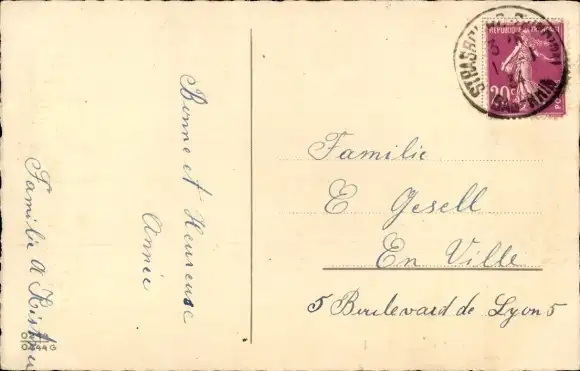 Bonne et Heureuse
Année
Familie A
STRASBOURG
BAS RHIN
REPUBLIQUE FRANCAISE
20c
Familie
E Gesell
En Ville
5 Boulevard de Lyon 5